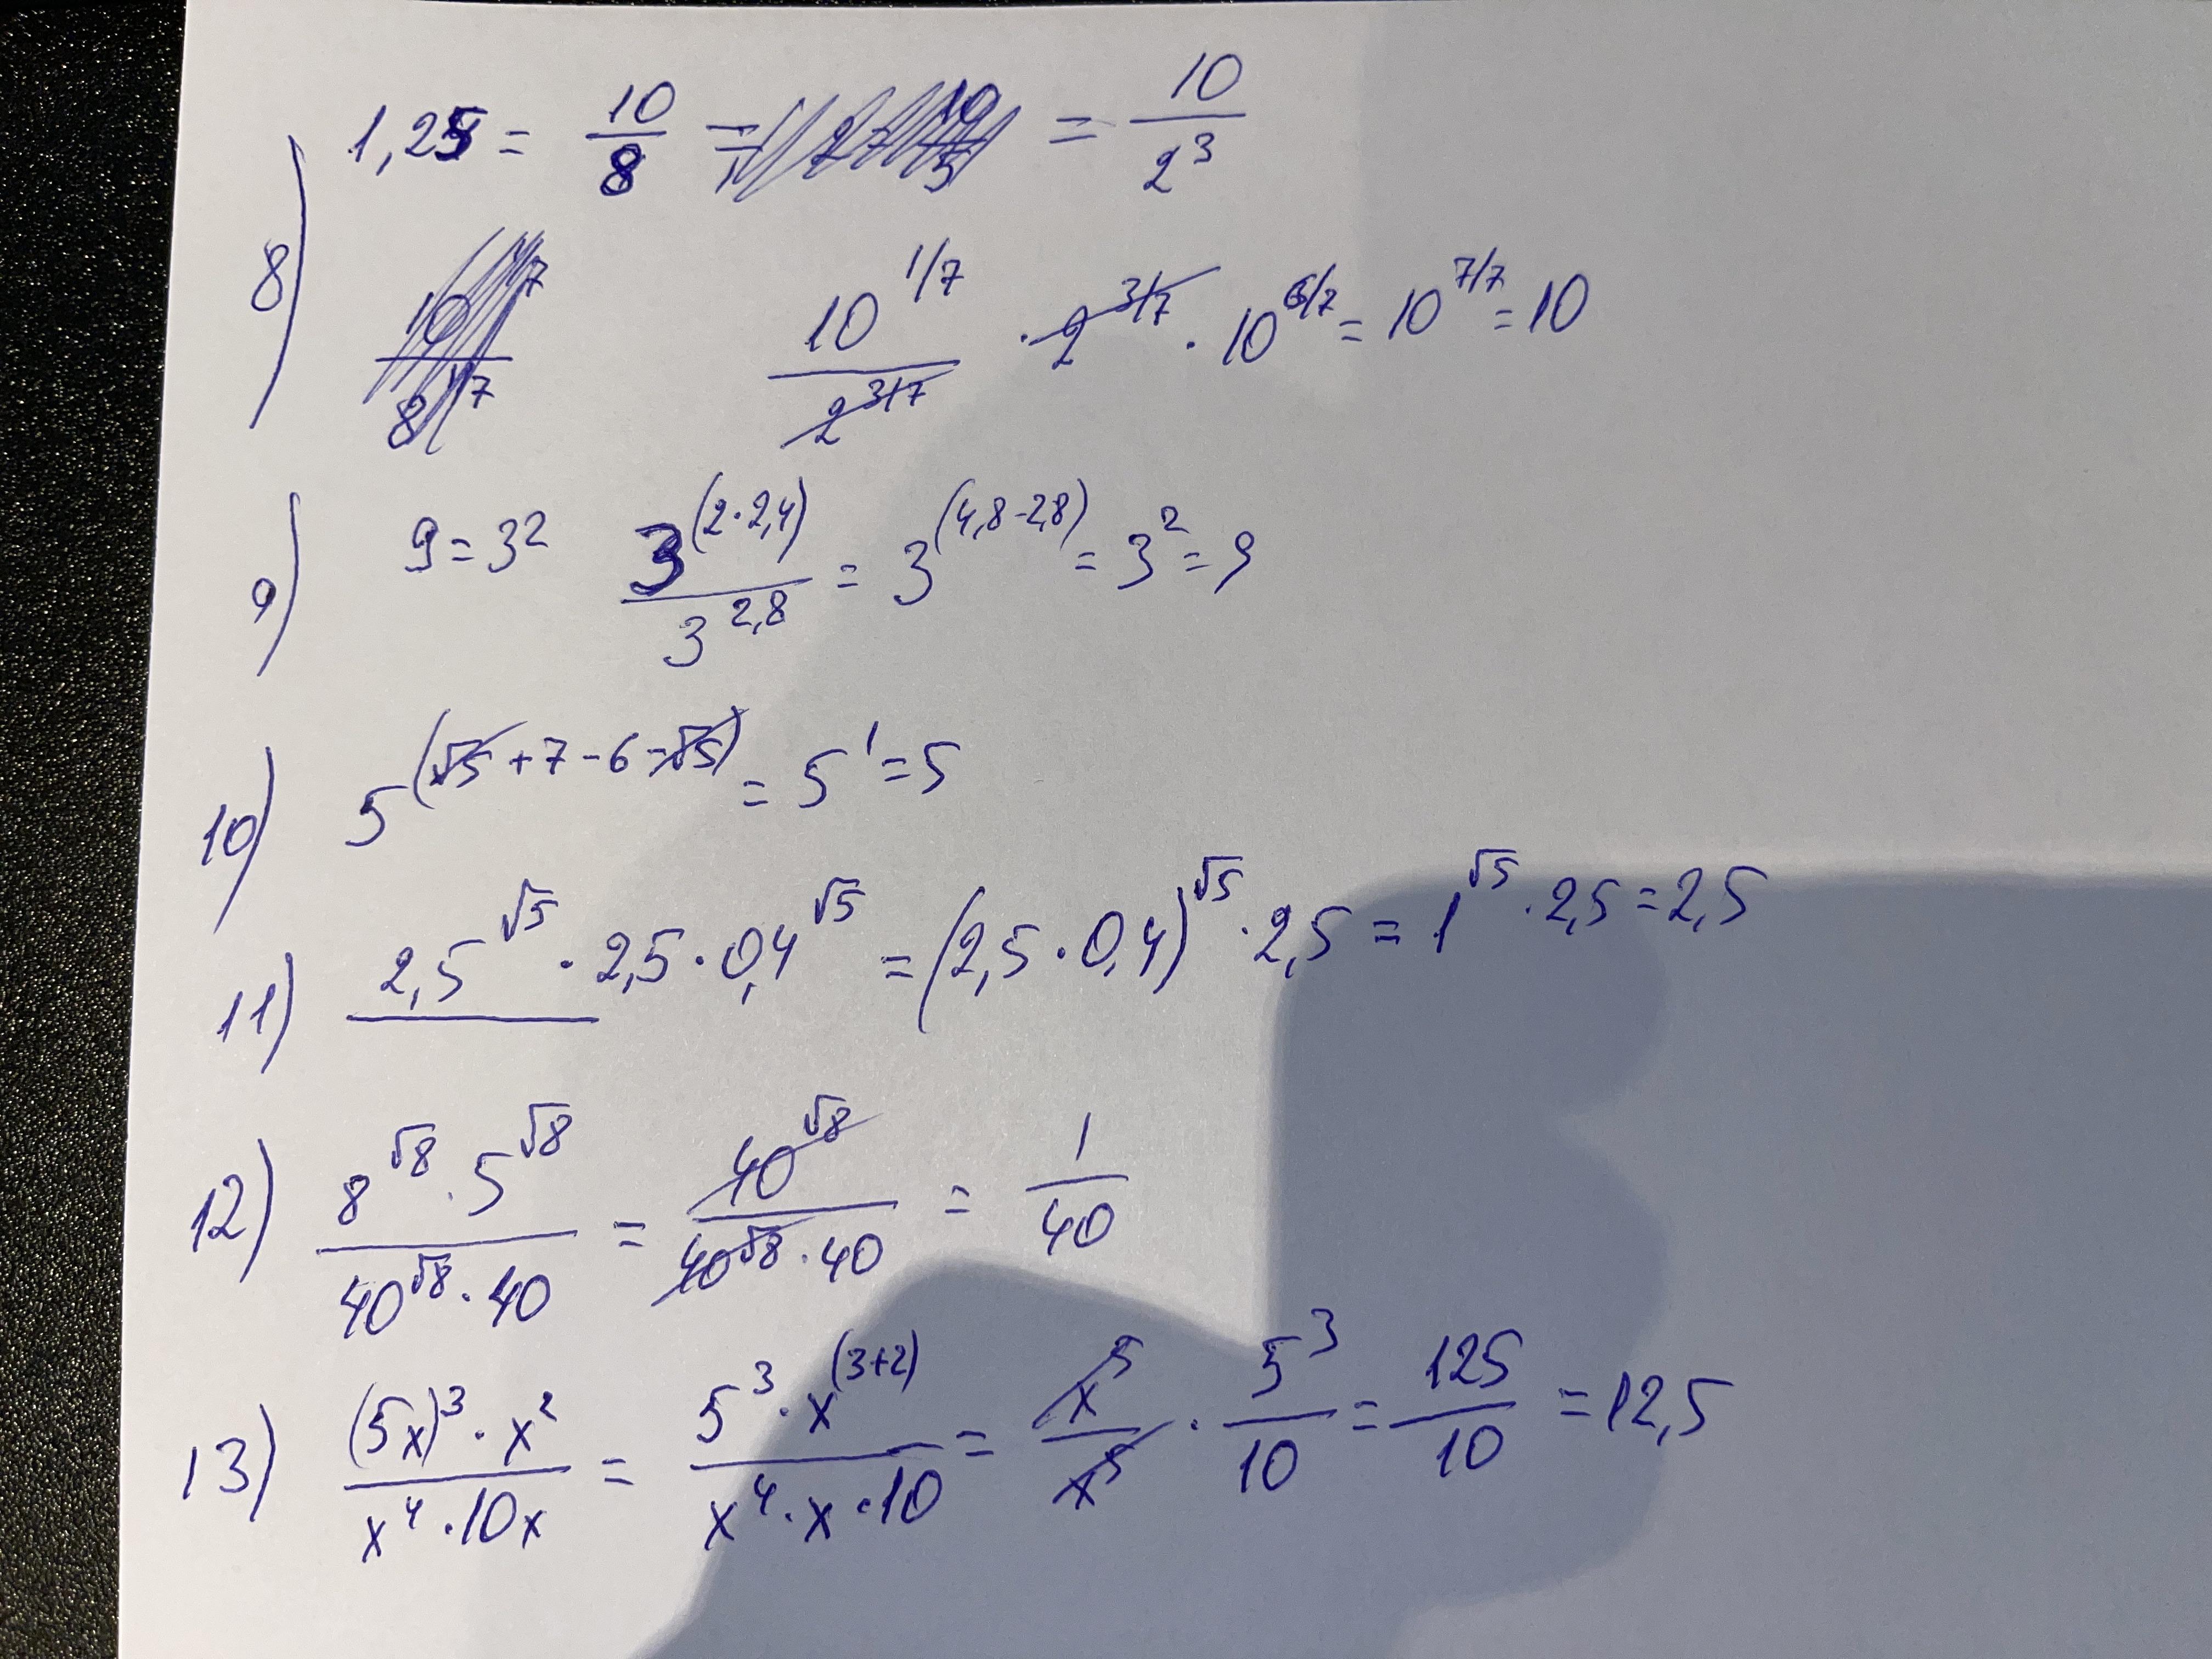 8) 1,25 = 10/8 = 10/2^3
10^(1/7)/2^(3/7) · 2^(3/7) · 10^(6/7) = 10^(7/7) = 10
9) 9 = 3^2 3^(2·2,4)/3^(2,8) = 3^(4,8-2,8) = 3^2 = 9
10) 5^(√5+7-6-√5) = 5^1 = 5
11) 2,5^√5 · 2,5 · 0,4^√5 = (2,5 · 0,4)^√5 · 2,5 = 1^√5 · 2,5 = 2,5
12) (8^√8 · 5^√8)/(40^√8 · 40) = 40^√8/(40^√8 · 40) = 1/40
13) ((5x)^3 · x^2)/(x^4 · 10x) = (5^3 · x^(3+2))/(x^4 · x · 10) = x^5/x^5 · 5^3/10 = 125/10 = 12,5